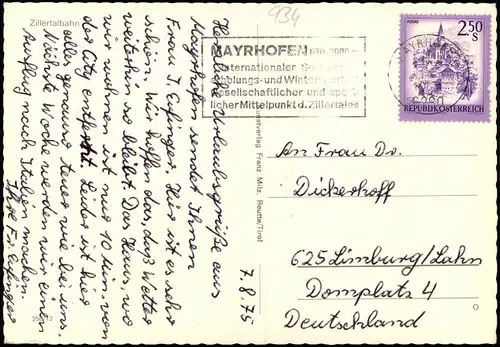 Zillertalbahn
934
MAYRHOFEN 630-3000 m
Internationaler
Erholungs- und Wintersport
Gesellschaftlicher und sport-
licher Mittelpunkt d. Zillertales
2.50
S
REPUBLIK ÖSTERREICH
6290
Herzliche Urlaubsgrüße aus
Mayrhofen sendet Ihnen
Frau I. Eufinger. Hier ist es sehr
schön. Wir hoffen das daß Wetter
weiterhin so bleibt. Das Haus, wo
wir wohnen ist nur 10 Min. von
der City entfernt. Leider ist hier
alles genauso teuer wie bei uns.
Nächste Woche werden wir einen
Ausflug nach Italien machen.
Ihre Fr. Eufinger
7.8.75
Kunstverlag Franz Milz, Reutte/Tirol
An Frau Dr.
Dickerhoff
625 Limburg/Lahn
Domplatz 4
Deutschland